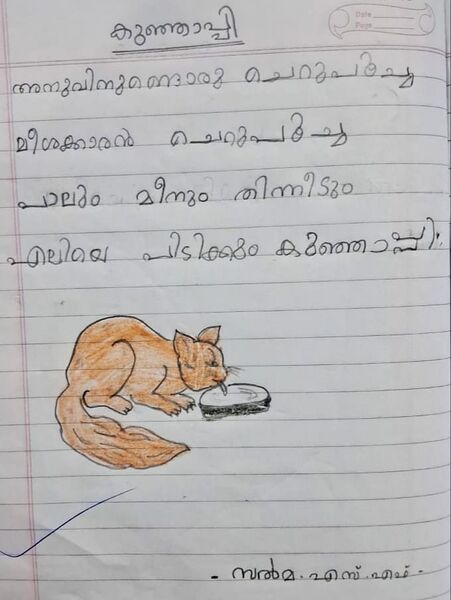 കുഞ്ഞാപ്പി
Date
Page
അനുവിനുണ്ടൊരു ചെറുപൂച്ച
മീശക്കാരൻ ചെറുപൂച്ച
പാലും മീനും തിന്നീടും
എലിയെ പിടിക്കും കുഞ്ഞാപ്പി.
- സൽമ. എസ്. എഫ് -